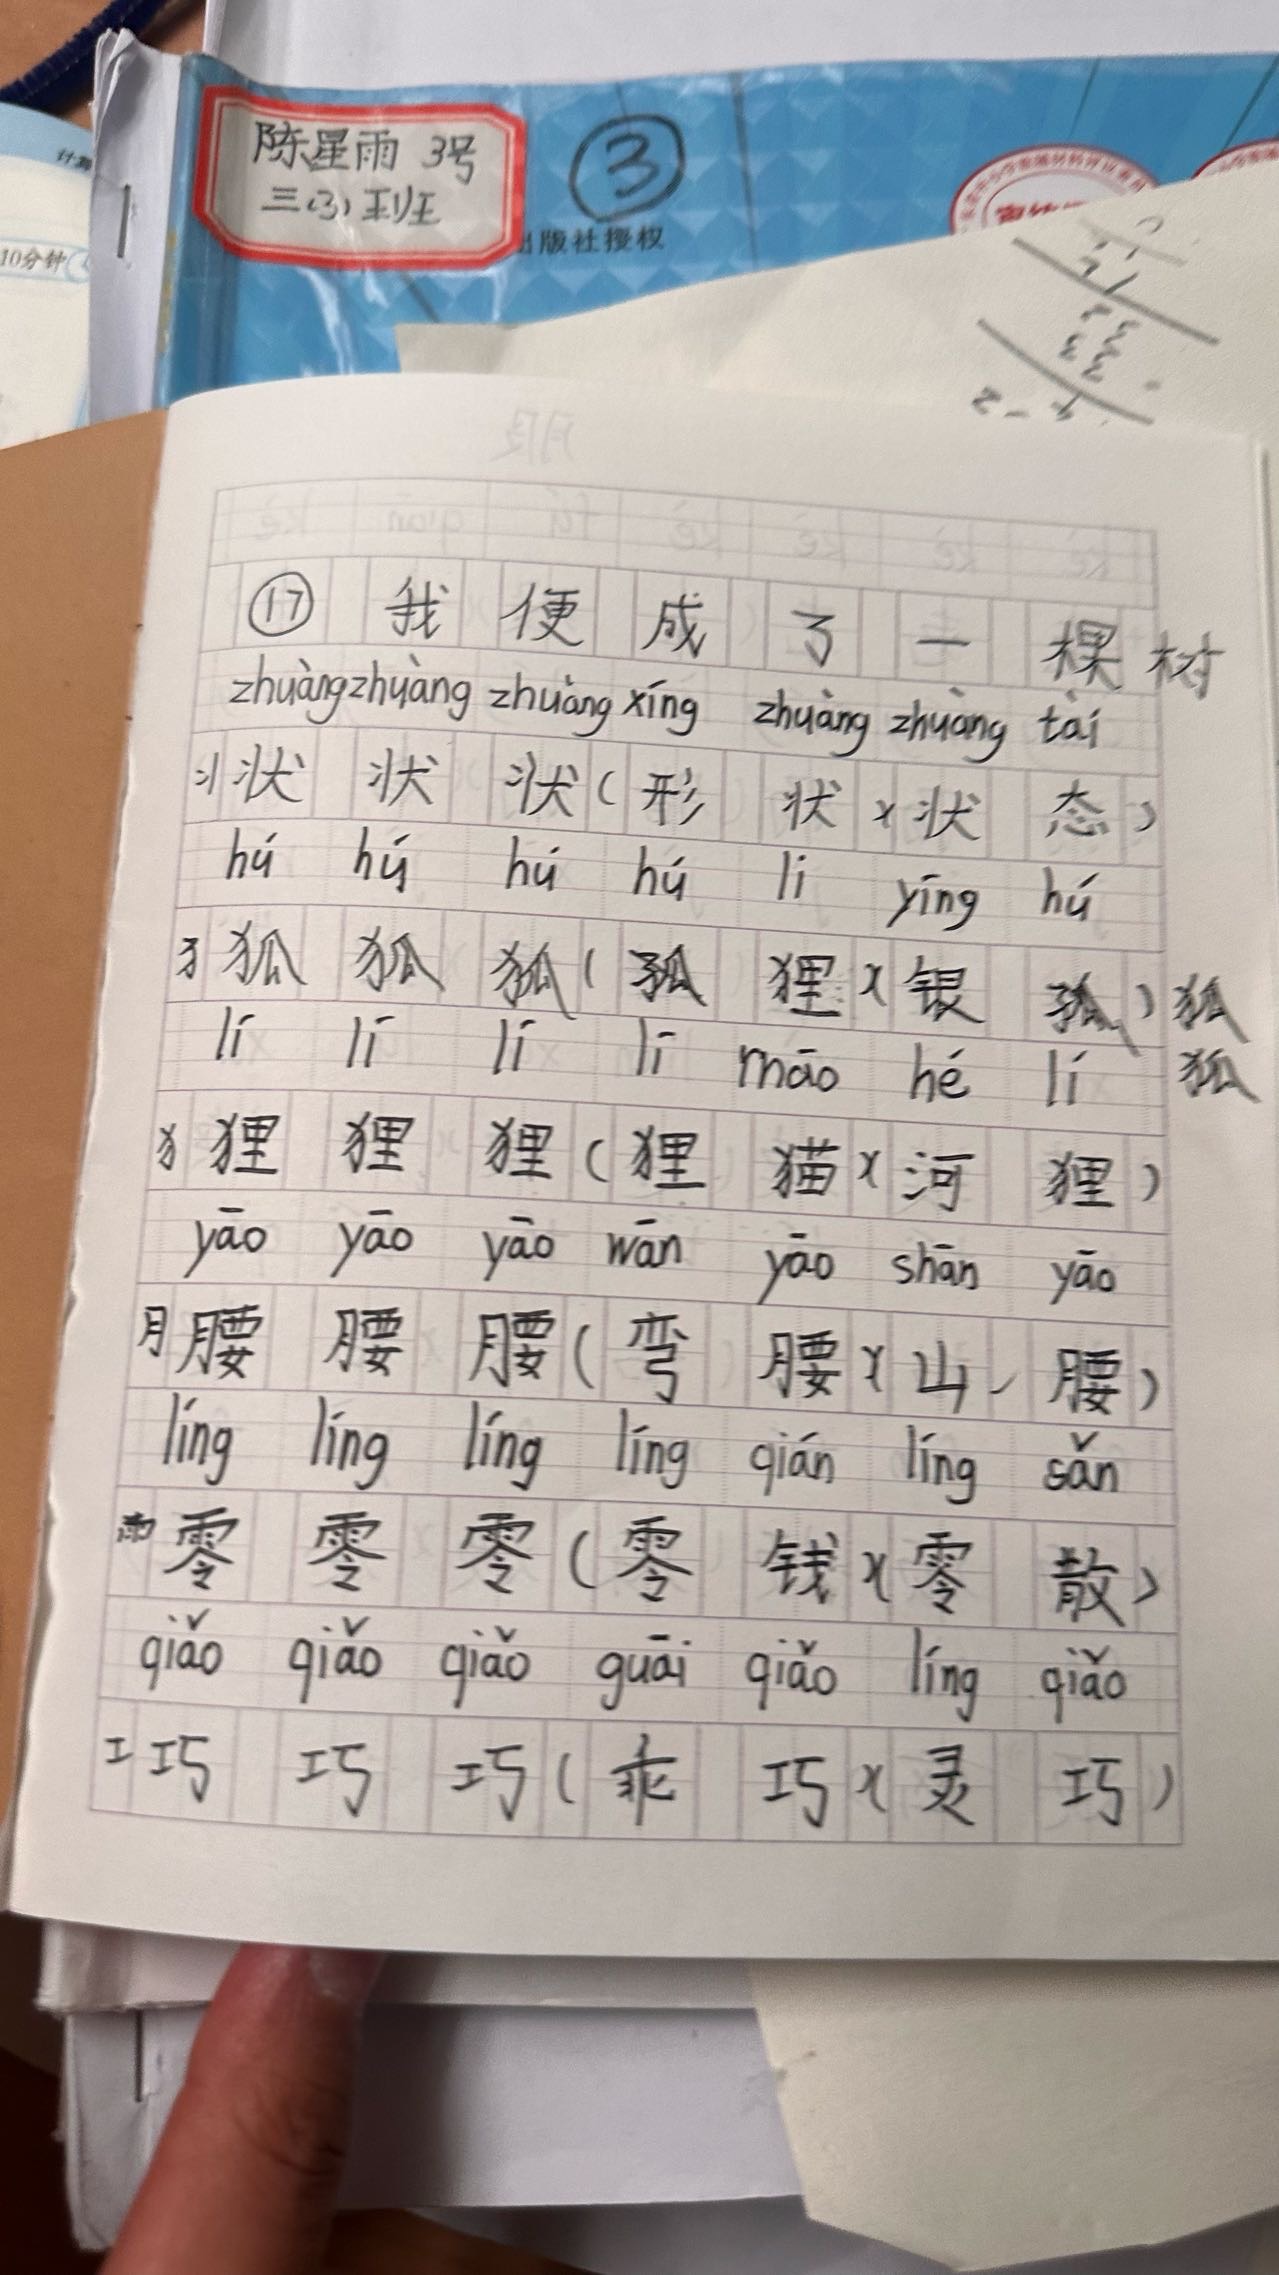 陈星雨 3号
三(3)班
③
出版社授权
10分钟
⑰ 我 便 成 了 一 棵 树
zhuàng zhuàng zhuàng xíng zhuàng zhuàng tài
丬 状 状 状 ( 形 状 x 状 态 )
hú hú hú hú li yīng hú
犭 狐 狐 狐 ( 孤 狸 x 银 孤 ) 狐
狐
lí lí lí lī māo hé lí
犭 狸 狸 狸 ( 狸 猫 x 河 狸 )
yāo yāo yāo wān yāo shān yāo
月 腰 腰 腰 ( 弯 腰 x 山 腰 )
líng líng líng líng qián líng sǎn
雨 零 零 零 ( 零 钱 x 零 散 )
qiǎo qiǎo qiǎo guāi qiǎo líng qiǎo
工 巧 巧 巧 ( 乖 巧 x 灵 巧 )